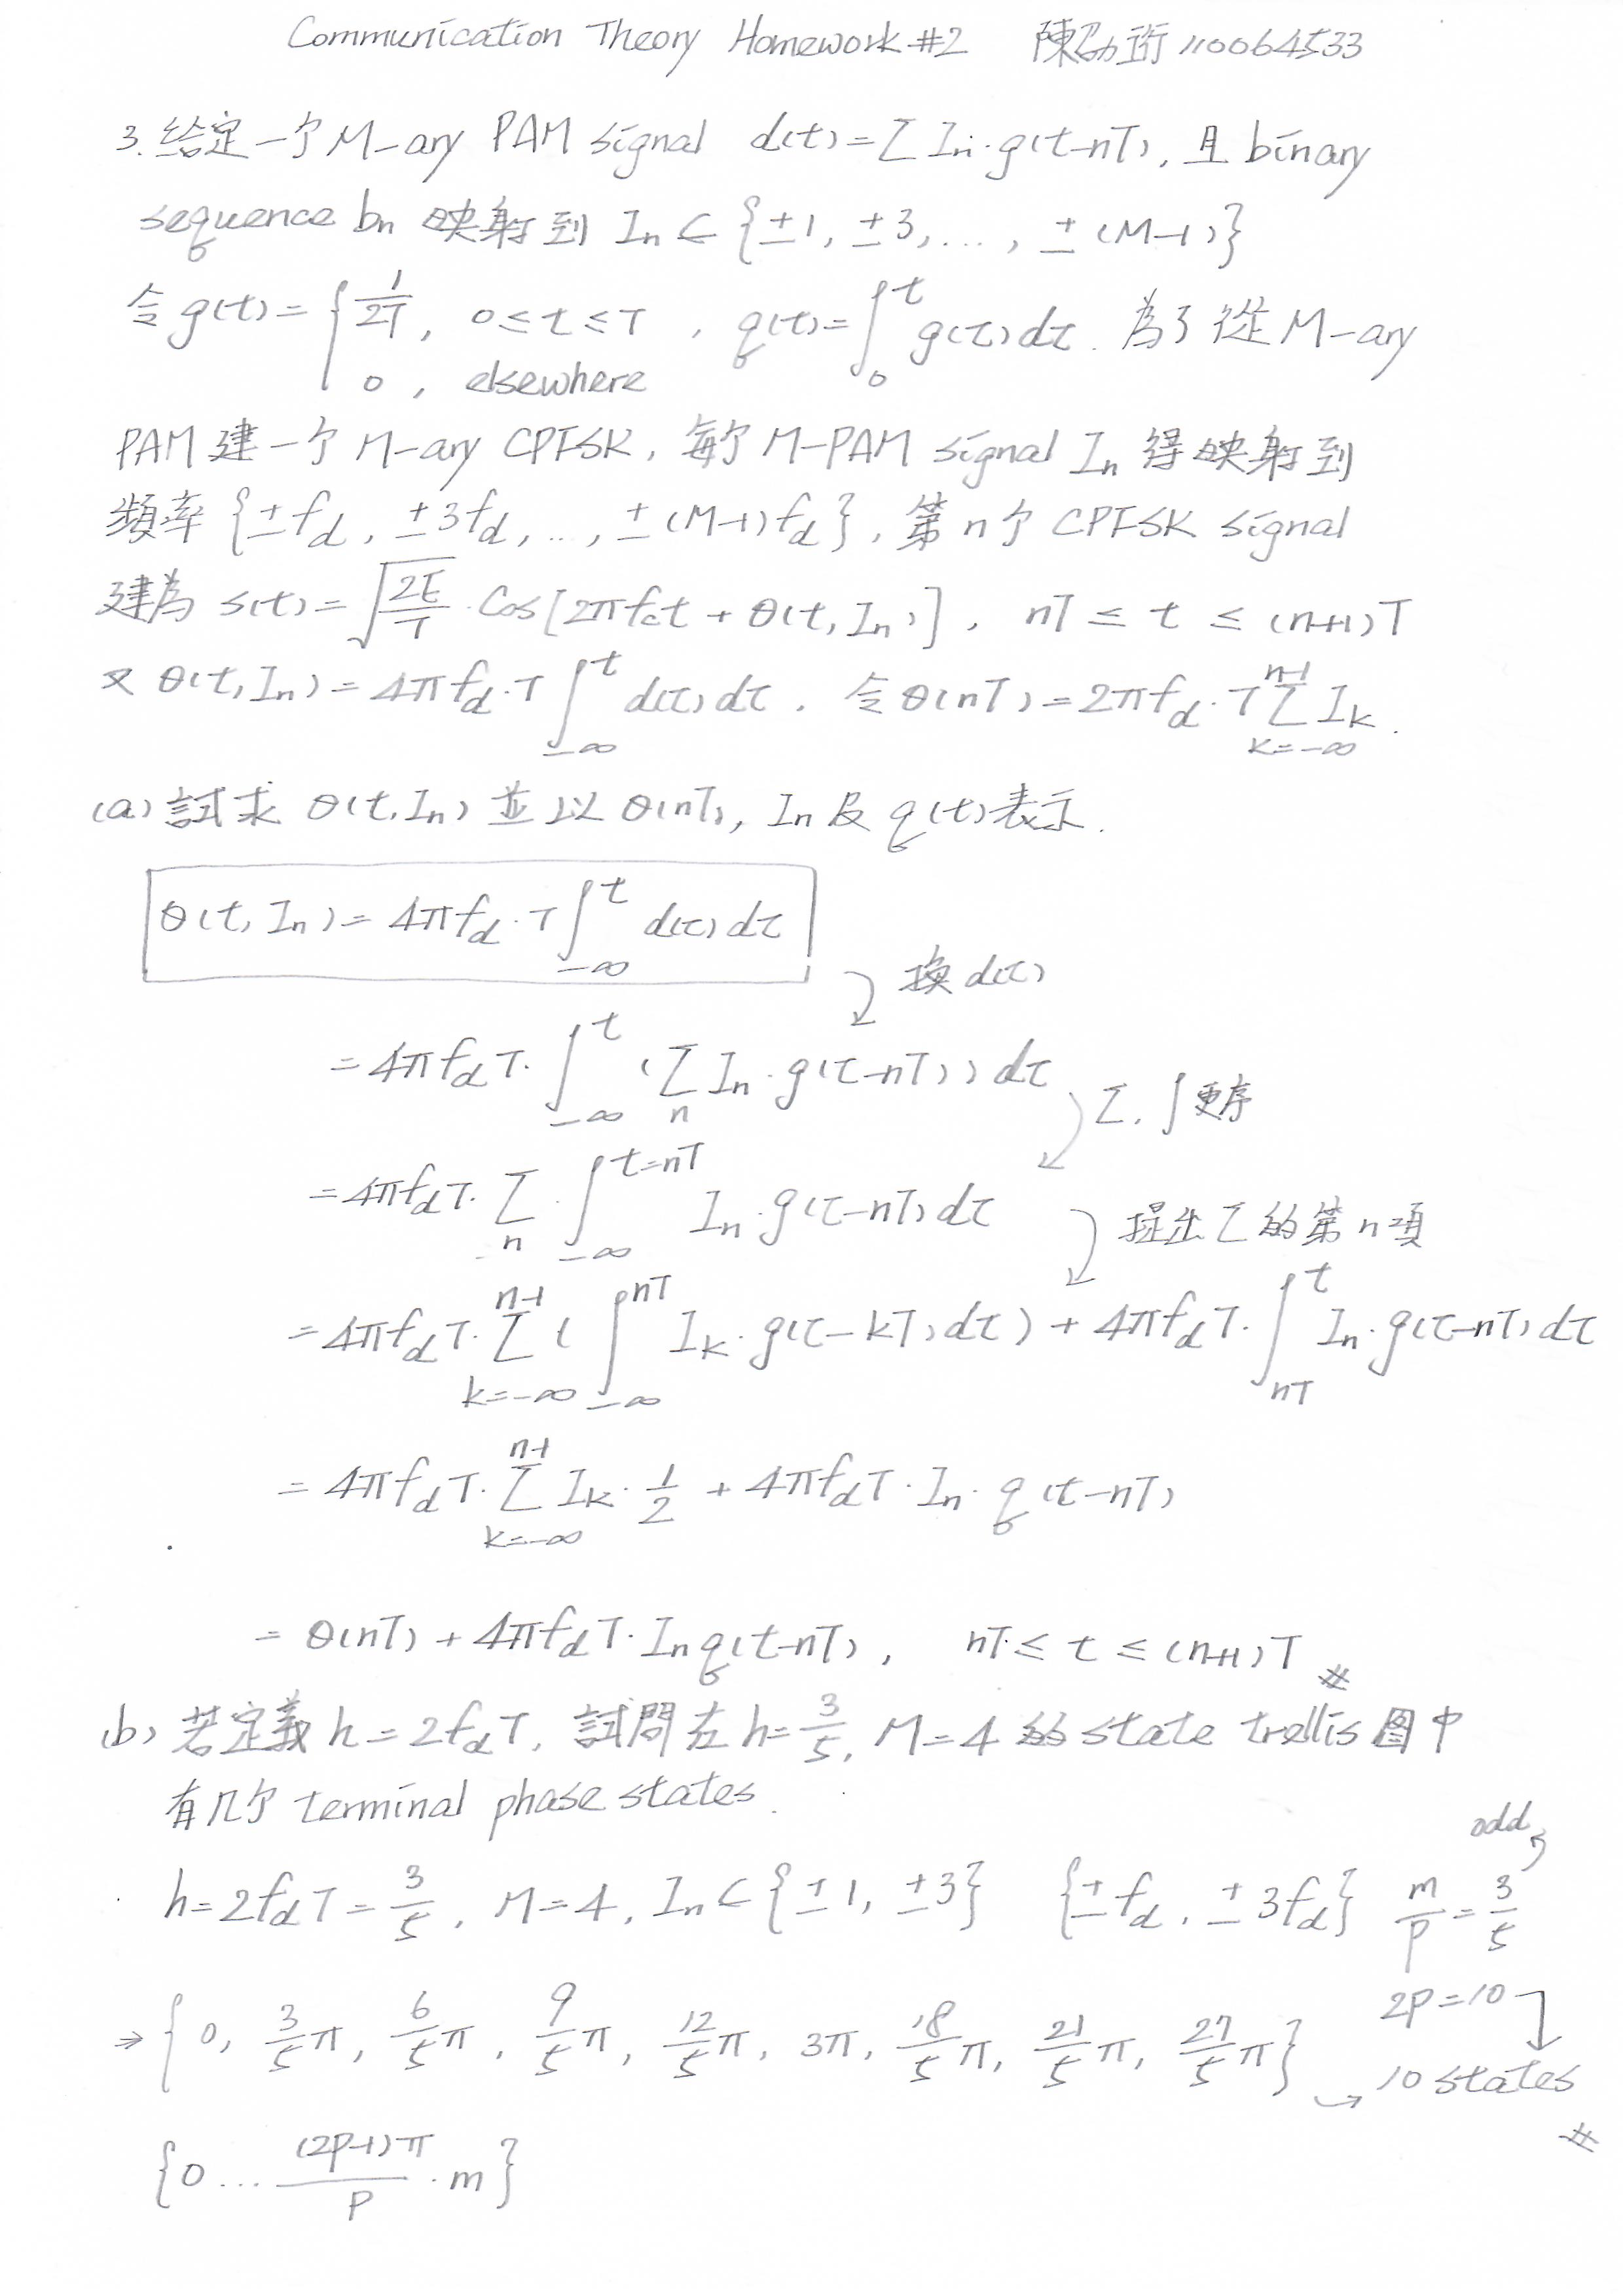 Communication Theory Homework #2 陳劭珩 110064533
3. 给定一个 M-ary PAM signal d(t)=Σ In·g(t-nT), 且 binary
sequence bn 映射到 In ⊂ {±1, ±3, ..., ±(M-1)}
令 g(t) = { 1/2T, 0≤t≤T , q(t)=∫_0^t g(τ)dτ. 為了從 M-ary
0, elsewhere
PAM 建一个 M-ary CPFSK, 每个 M-PAM signal In 得映射到
頻率 {±fd, ±3fd, ..., ±(M-1)fd}, 第 n 个 CPFSK signal
建為 s(t)=√(2E/T)·Cos[2πfct + θ(t, In)], nT ≤ t ≤ (n+1)T
又 θ(t, In) = 4πfd·T ∫_{-∞}^t d(τ)dτ. 令 θ(nT) = 2πfd·T Σ_{k=-∞}^{n-1} Ik.
(a) 試求 θ(t, In) 並以 θ(nT), In 及 q(t) 表示.
θ(t, In) = 4πfd·T ∫_{-∞}^t d(τ)dτ
換 d(τ)
= 4πfdT·∫_{-∞}^t (Σ_n In·g(τ-nT)) dτ
Σ, ∫ 更序
= 4πfdT·Σ_n·∫_{-∞}^{t=nT} In·g(τ-nT)dτ
提出 Σ 的第 n 項
= 4πfdT·Σ_{k=-∞}^{n-1} (∫_{-∞}^{nT} Ik·g(τ-kT)dτ) + 4πfdT·∫_{nT}^t In·g(τ-nT)dτ
= 4πfdT·Σ_{k=-∞}^{n-1} Ik·1/2 + 4πfdT·In·q(t-nT)
= θ(nT) + 4πfdT·In q(t-nT), nT ≤ t ≤ (n+1)T #
(b) 若定義 h=2fdT, 試問在 h=3/5, M=4 的 state trellis 图中
有几个 terminal phase states.
odd
h=2fdT=3/5, M=4, In ⊂ {±1, ±3} {±fd, ±3fd} m/p=3/5
2P=10
⇒ {0, 3/5π, 6/5π, 9/5π, 12/5π, 3π, 18/5π, 21/5π, 27/5π} → 10 states #
{0 ... (2P-1)π/P · m}